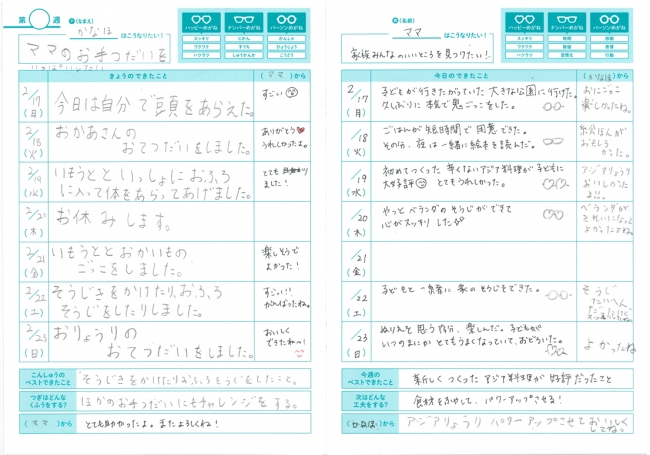 第 週
(なまえ)
かなほ
はこうなりたい!
ママのお手つだいを
いっぱいしたい
ハッピーめがね
ナンバーめがね
パーソンめがね
スッキリ
じかん
かんしゃ
ワクワク
すうち
ひょうじょう
ハラハラ
しゅうかんか
こうどう
きょうのできたこと
(ママ)から
2/17
(月)
今日は自分で頭をあらえた。
すごい
2/18
(火)
おかあさんの
おてつだいをしました。
ありがとう
うれしかったよ。
2/19
(水)
いもうとといっしょにおふろ
に入って体をあらってあげました。
とても助かり
ました!
2/20
(木)
お休みします。
2/21
(金)
いもうととおかいもの
ごっこをしました。
楽しそうで
よかった!
2/22
(土)
そうじきをかけたり、おふろ
そうじをしたりしました。
すごい!!
がんばったね。
2/23
(日)
おりょうりの
おてつだいをしました。
おいしく
できたね〜!
こんしゅうの
ベストできたこと
そうじきをかけたりおふろそうじをしたこと。
つぎはどんな
くふうをする?
ほかのお手つだいにもチャレンジをする。
(ママ)から
とても助かったよ。またよろしくね!
(名前)
ママ
はこうなりたい!
家族みんなのいいところを見つけたい!
ハッピーめがね
ナンバーめがね
パーソンめがね
スッキリ
時間
感謝
ワクワク
数値
表情
ハラハラ
習慣化
行動
今日のできたこと
(かなほ)から
2/17
(月)
子どもが行きたがっていた大きな公園に行けた。
久しぶりに本気で鬼ごっこをした。
おにごっこ
楽しかったね。
/18
(火)
ごはんが短時間で用意できた。
その分、夜は一緒に絵本を読んだ。
絵本が
おもしろ
かった。
/19
(水)
初めてつくった辛くないアジア料理が子どもに
大好評 とてもうれしかった。
アジアりょうり
おいしかった
よ!!
/20
(木)
やっとベランダのそうじができて
心がスッキリした
ベランダが
きれいになって
よかったよね。
/21
(金)
/22
(土)
子どもと一緒に家のそうじをできた。
そうじ
たいへん
/23
(日)
ぬりえを思う存分、楽しんだ。子どもが
いつのまにかとてもうまくなっていて、おどろいた。
よかったね
今週の
ベストできたこと
新しくつくったアジア料理が好評だったこと
次はどんな
工夫をする?
食材をふやして、パワーアップさせる!
(かなほ)から
アジアりょうりパワーアップさせておいしく
してね。